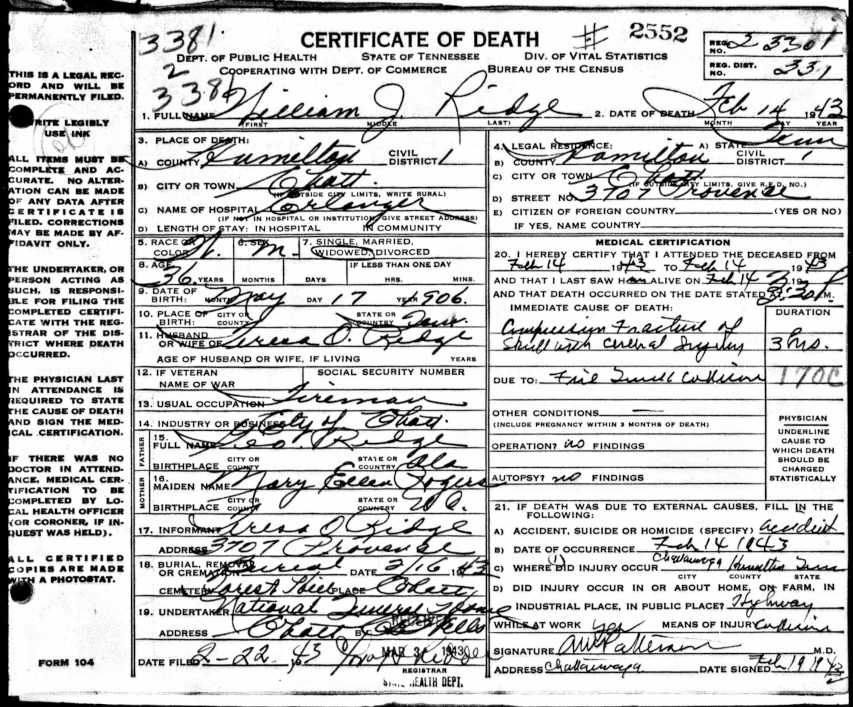 3381
2
3381
CERTIFICATE OF DEATH
# 2552
DEPT. OF PUBLIC HEALTH STATE OF TENNESSEE DIV. OF VITAL STATISTICS
COOPERATING WITH DEPT. OF COMMERCE BUREAU OF THE CENSUS
REG. NO. 2 3301
REG. DIST. NO. 331
1. FULL NAME William J. Ridge
(FIRST) MIDDLE LAST)
2. DATE OF DEATH Feb 14 1943
MONTH DAY YEAR
3. PLACE OF DEATH:
A) COUNTY Hamilton CIVIL DISTRICT 1
B) CITY OR TOWN Chatt.
(IF OUTSIDE CITY LIMITS, WRITE RURAL)
C) NAME OF HOSPITAL Erlanger
(IF NOT IN HOSPITAL OR INSTITUTION, GIVE STREET ADDRESS)
D) LENGTH OF STAY: IN HOSPITAL IN COMMUNITY
4. LEGAL RESIDENCE: A) STATE Tenn
B) COUNTY Hamilton CIVIL DISTRICT 1
C) CITY OR TOWN Chatt.
(IF OUTSIDE CITY LIMITS, GIVE R.F.D. NO.)
D) STREET NO. 3707 Provense
E) CITIZEN OF FOREIGN COUNTRY (YES OR NO)
IF YES, NAME COUNTRY
5. RACE OR COLOR W. 6. SEX M. 7. SINGLE, MARRIED, WIDOWED, DIVORCED
8. AGE 36 YEARS MONTHS DAYS IF LESS THAN ONE DAY HRS. MINS.
9. DATE OF BIRTH: MONTH May DAY 17 YEAR 906.
10. PLACE OF BIRTH: CITY OR COUNTY STATE OR COUNTRY Tenn.
11. HUSBAND OR WIFE OF Teresa O. Ridge
AGE OF HUSBAND OR WIFE, IF LIVING YEARS
12. IF VETERAN NAME OF WAR SOCIAL SECURITY NUMBER
13. USUAL OCCUPATION Fireman
14. INDUSTRY OR BUSINESS City of Chatt.
FATHER
15. FULL NAME Geo. Ridge
BIRTHPLACE CITY OR COUNTY STATE OR COUNTRY Ala
MOTHER
16. MAIDEN NAME Mary Ellen Rogers
BIRTHPLACE CITY OR COUNTY STATE OR COUNTRY
17. INFORMANT Teresa O Ridge
ADDRESS 3707 Provense
18. BURIAL, REMOVAL OR CREMATION Burial DATE 2/16 1943
CEMETERY Forest Hills PLACE Chatt
19. UNDERTAKER National Funeral Home
ADDRESS Chatt BY
RECEIVED
MAR 3 1943
DATE FILED 2-22 43
REGISTRAR
STATE HEALTH DEPT.
MEDICAL CERTIFICATION
20. I HEREBY CERTIFY THAT I ATTENDED THE DECEASED FROM
Feb 14 1943 TO Feb 14 1943
AND THAT I LAST SAW HIM ALIVE ON Feb 14 19
AND THAT DEATH OCCURRED ON THE DATE STATED AT 8:30 P.M.
IMMEDIATE CAUSE OF DEATH: DURATION
Compression Fracture of
Skull with Cerebral Injury 3 hrs.
DUE TO: Fire Truck Collision 170C
OTHER CONDITIONS
(INCLUDE PREGNANCY WITHIN 3 MONTHS OF DEATH)
OPERATION? no FINDINGS
AUTOPSY? no FINDINGS
PHYSICIAN
UNDERLINE CAUSE TO WHICH DEATH SHOULD BE CHARGED STATISTICALLY
21. IF DEATH WAS DUE TO EXTERNAL CAUSES, FILL IN THE FOLLOWING:
A) ACCIDENT, SUICIDE OR HOMICIDE (SPECIFY) accident
B) DATE OF OCCURRENCE Feb 14 1943
C) WHERE DID INJURY OCCUR Chattanooga Hamilton Tenn
CITY COUNTY STATE
D) DID INJURY OCCUR IN OR ABOUT HOME, ON FARM, IN
INDUSTRIAL PLACE, IN PUBLIC PLACE? Highway
WHILE AT WORK yes MEANS OF INJURY Collision
SIGNATURE AW Patterson M.D.
ADDRESS Chattanooga DATE SIGNED Feb 19 1943
THIS IS A LEGAL RECORD AND WILL BE PERMANENTLY FILED.
WRITE LEGIBLY
USE INK
ALL ITEMS MUST BE COMPLETE AND ACCURATE. NO ALTERATION CAN BE MADE OF ANY DATA AFTER CERTIFICATE IS FILED. CORRECTIONS MAY BE MADE BY AFFIDAVIT ONLY.
THE UNDERTAKER, OR PERSON ACTING AS SUCH, IS RESPONSIBLE FOR FILING THE COMPLETED CERTIFICATE WITH THE REGISTRAR OF THE DISTRICT WHERE DEATH OCCURRED.
THE PHYSICIAN LAST IN ATTENDANCE IS REQUIRED TO STATE THE CAUSE OF DEATH AND SIGN THE MEDICAL CERTIFICATION.
IF THERE WAS NO DOCTOR IN ATTENDANCE, MEDICAL CERTIFICATION TO BE COMPLETED BY LOCAL HEALTH OFFICER (OR CORONER, IF INQUEST WAS HELD).
ALL CERTIFIED COPIES ARE MADE WITH A PHOTOSTAT.
FORM 104